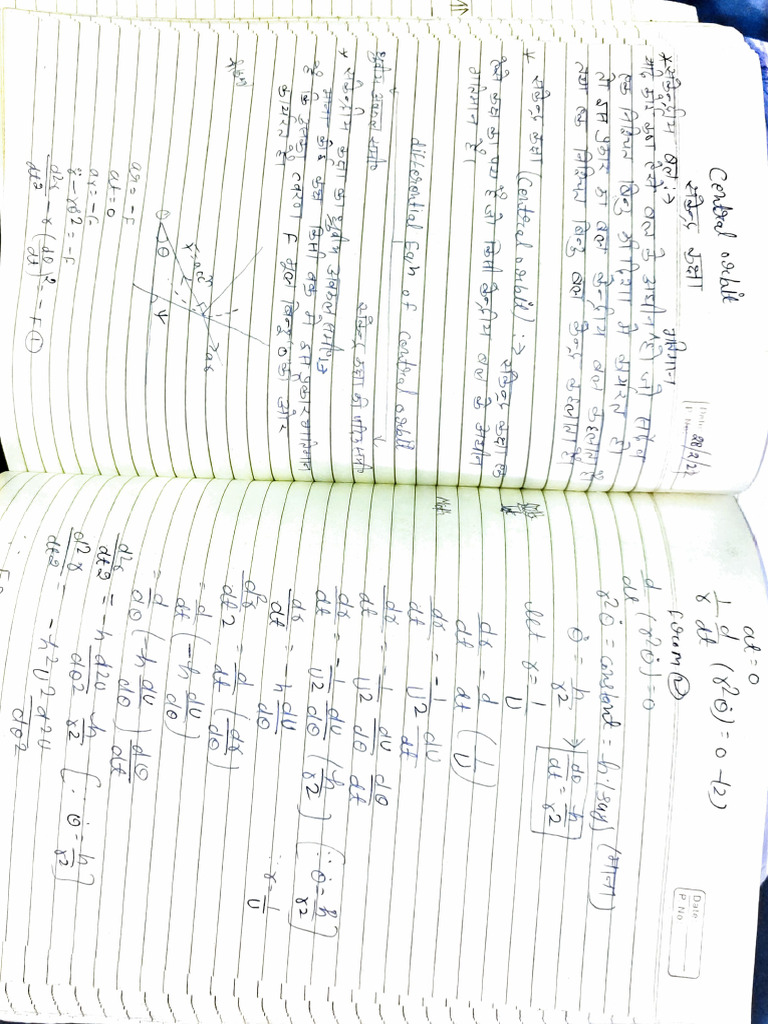 Central orbit
संकेन्द्र कक्षा
गतिमान
Date 28/2/22
P No
* संकेन्द्रीय बल :→
यदि कोई कण ऐसे बल के आधीन हो जो सदैव
एक निश्चित बिन्दु की दिशा में कार्यरत हो
तो इस प्रकार का बल केन्द्रीय बल कहलाता है
तथा एक निश्चित बिन्दु बल केन्द्र कहलाता है
* संकेन्द्र कक्षा (Central orbit) :→ संकेन्द्र कक्षा एक
ऐसे कण का पथ है जो किसी केन्द्रीय बल के अधीन
गतिमान है।
differential Eqn of central orbit
ध्रुवीय अवकल समी०
संकेन्द्र कक्षा की
* संकेन्द्रीय कक्षा का ध्रुवीय अवकल समी०
माना कोई कण किसी वक्र में इस प्रकार गतिमान
है कि इसका त्वरण F मूल बिन्दु O की ओर
कार्यरत है।
O θ ψ
ar = -F
at = 0
ar = -F
r̈ - rθ̇² = -F
d²r/dt² - r (dθ/dt)² = -F ①
Date
P No
at = 0
1/r d/dt (r²θ̇) = 0 -(2)
from ②
d/dt (r²θ̇) = 0
r²θ̇ = constant = h (say) (माना)
θ̇ = h/r² ⇒ dθ/dt = h/r²
let r = 1/u
dr/dt = d/dt (1/u)
dr/dt = -1/u² du/dt
dr/dt = -1/u² du/dθ dθ/dt
dr/dt = -1/u² du/dθ (h/r²) [∵ θ̇ = h/r²]
dr/dt = -h du/dθ ∵ r = 1/u
d²r/dt² = d/dt (dr/dt)
= d/dt (-h du/dθ)
= d/dθ (-h du/dθ) dθ/dt
d²r/dt² = -h d²u/dθ² h/r² [∵ θ̇ = h/r²]
d²r/dt² = -h²u² d²u/dθ²